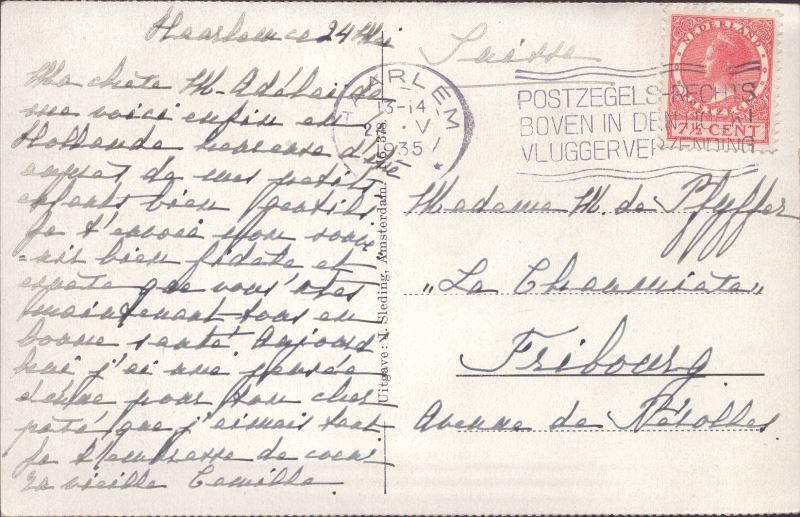 Haarlem ce 24 Mai
Ma chère M-Adélaïde
me voici enfin en
Hollande heureuse d'être
auprès de mes petits
enfants bien gentils
Je t'envoie mon souve
-nir bien fidèle et
espère que vous êtes
maintenant tous en
bonne santé Aujourd
hui j'ai une pensée
pour ton cher
que j'aimais tant
Je t'embrasse de coeur
ta vieille Camille
Uitgave: J. Sleding, Amsterdam.
Suisse
HAARLEM
13-14
V
1935
POSTZEGELS RECHTS
BOVEN IN DEN HOEK!
VLUGGER VERZENDING
NEDERLAND
7½ CENT
Madame M. de Pfyffer
"La Chaumière"
Fribourg
Avenue de Pérolles